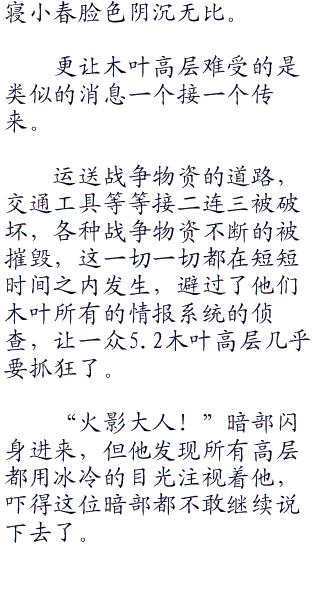 寝小春脸色阴沉无比。
更让木叶高层难受的是
类似的消息一个接一个传
来。
运送战争物资的道路，
交通工具等等接二连三被破
坏，各种战争物资不断的被
摧毁，这一切一切都在短短
时间之内发生，避过了他们
木叶所有的情报系统的侦
查，让一众5.2木叶高层几乎
要抓狂了。
“火影大人！”暗部闪
身进来，但他发现所有高层
都用冰冷的目光注视着他，
吓得这位暗部都不敢继续说
下去了。